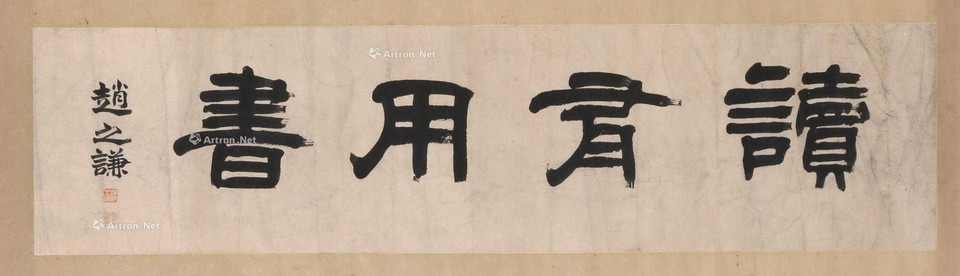 讀有用書
趙之謙
Artron.Net
Artron.Net
Artron.Net